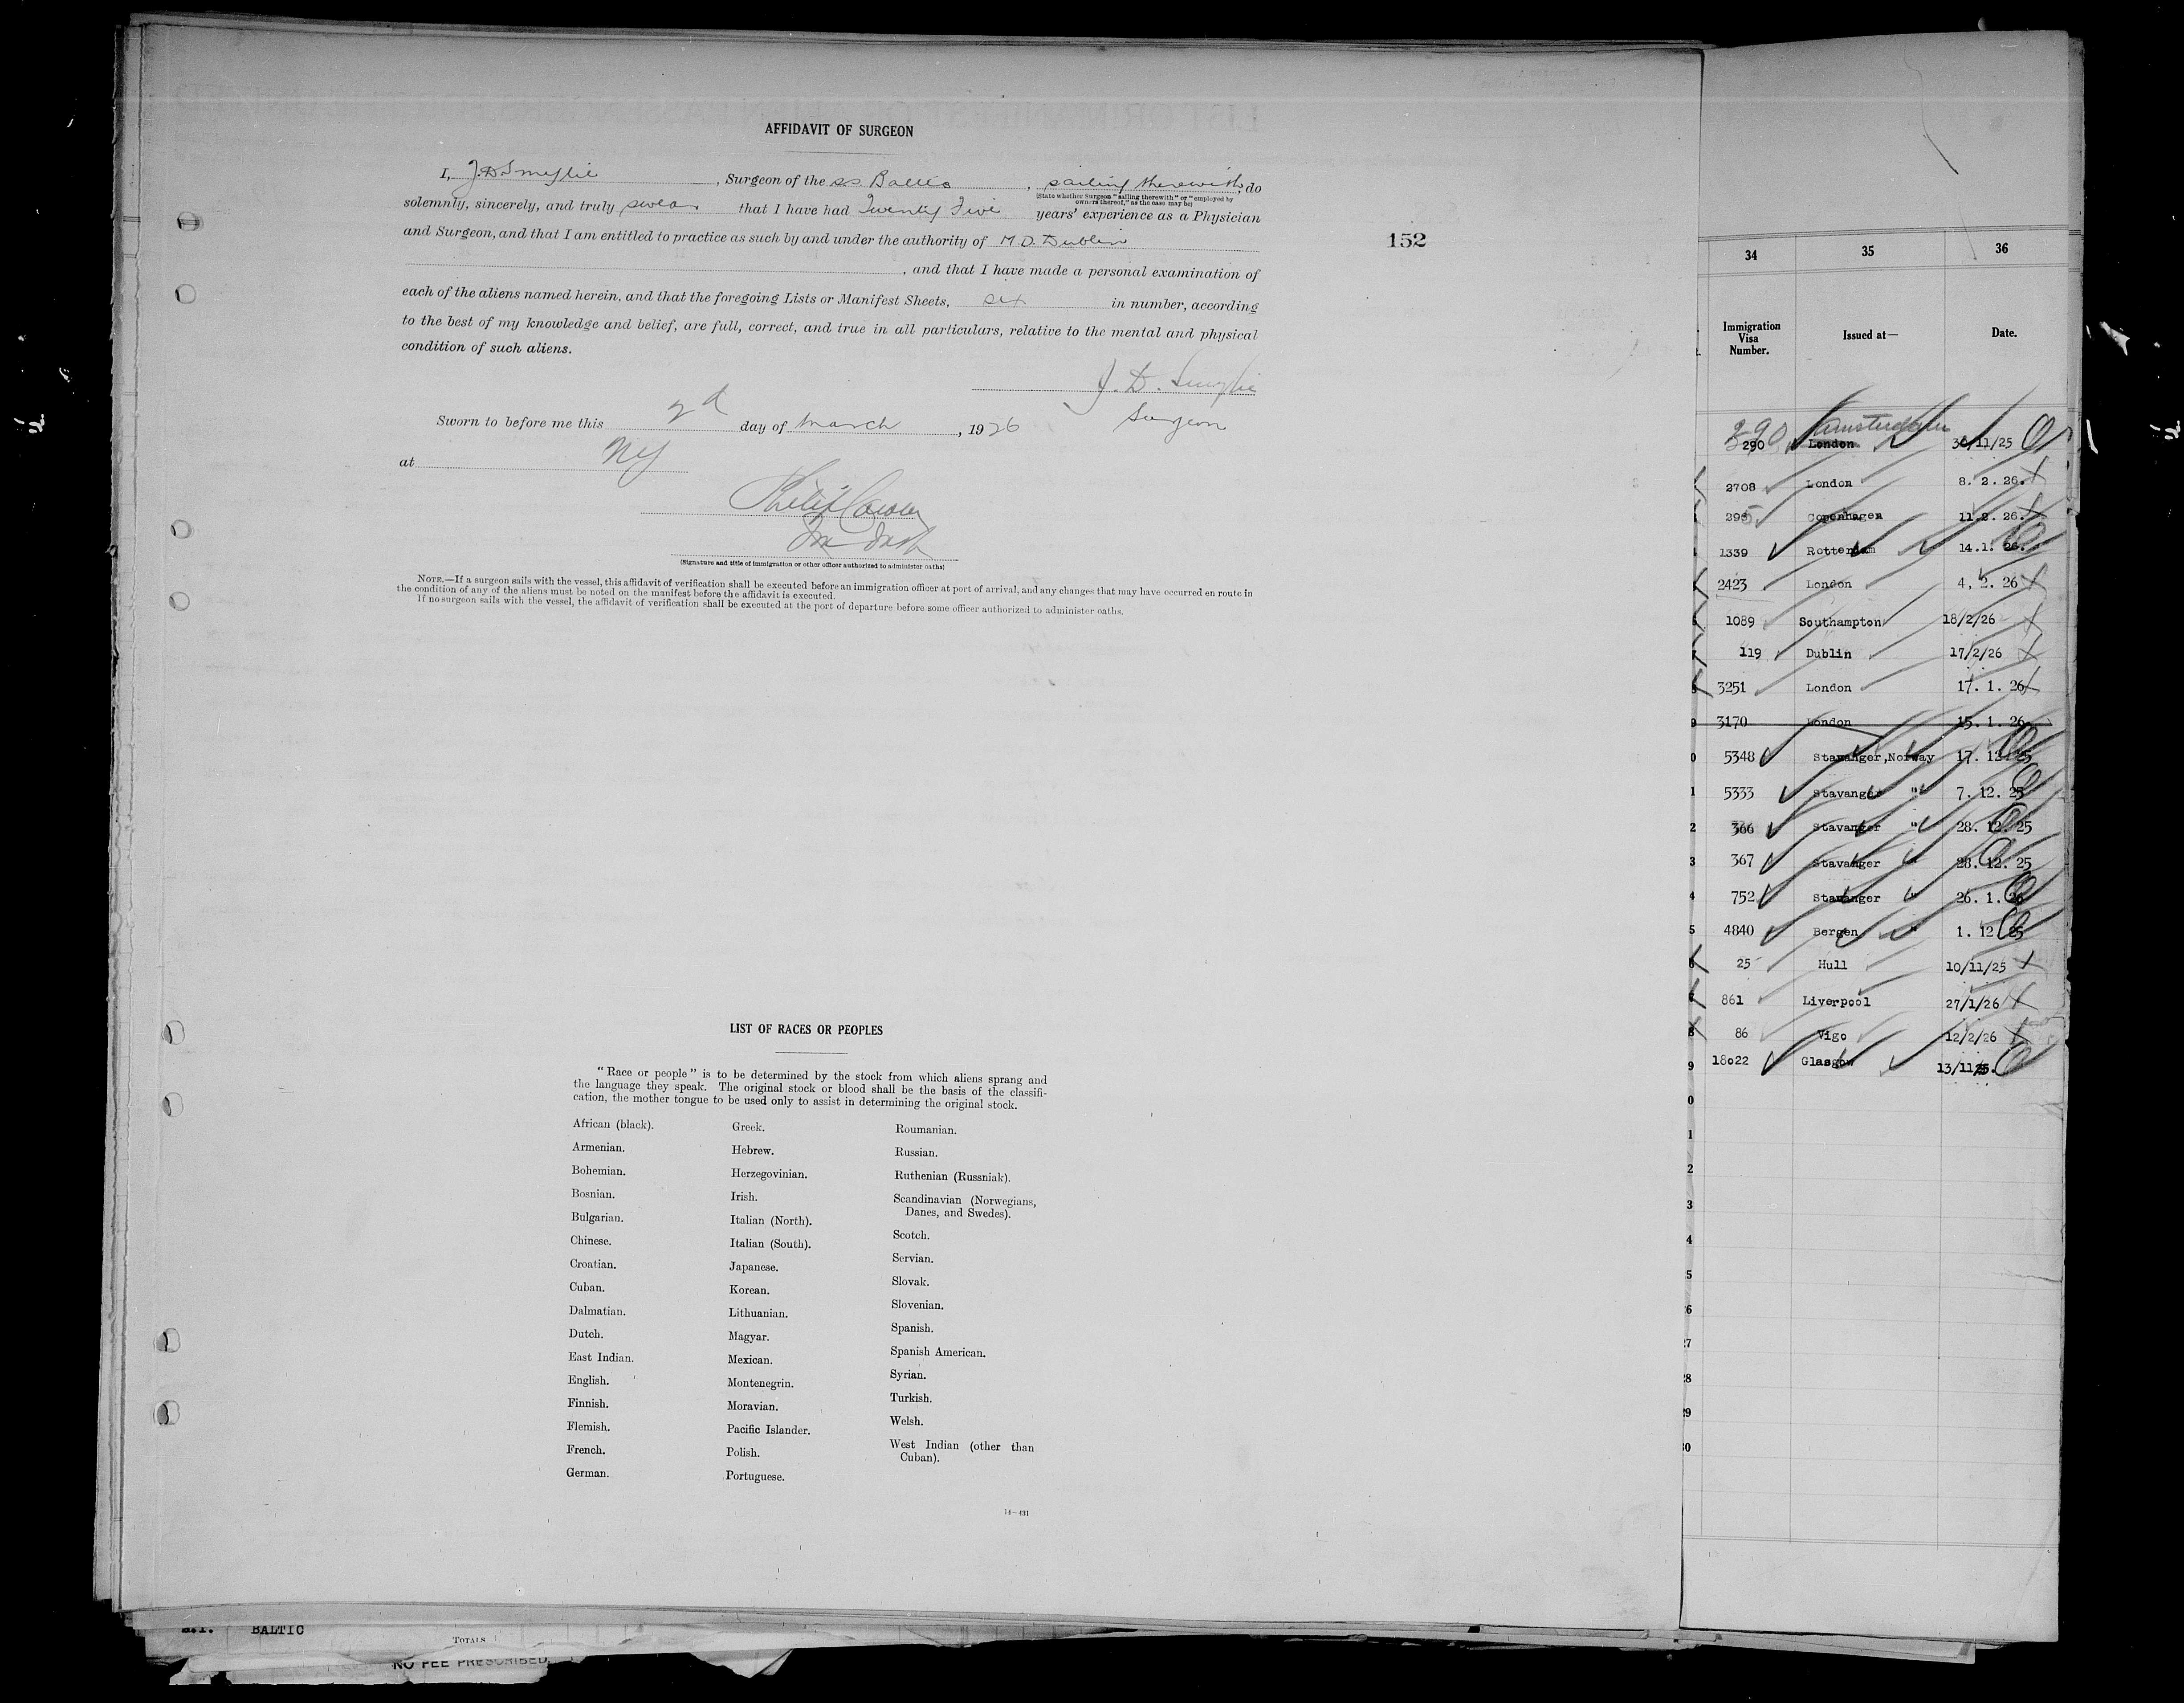 AFFIDAVIT OF SURGEON
I, J. D. Smylie, Surgeon of the ss Baltic, sailing therewith, do
(State whether Surgeon "sailing therewith" or "employed by
owners thereof," as the case may be)
solemnly, sincerely, and truly swear that I have had Twenty Five years' experience as a Physician
and Surgeon, and that I am entitled to practice as such by and under the authority of M.D. Dublin
, and that I have made a personal examination of
each of the aliens named herein, and that the foregoing Lists or Manifest Sheets, six in number, according
to the best of my knowledge and belief, are full, correct, and true in all particulars, relative to the mental and physical
condition of such aliens.
J. D. Smylie
Surgeon
Sworn to before me this 2d day of March, 1926
at NY
(Signature and title of immigration or other officer authorized to administer oaths)
NOTE.—If a surgeon sails with the vessel, this affidavit of verification shall be executed before an immigration officer at port of arrival, and any changes that may have occurred en route in
the condition of any of the aliens must be noted on the manifest before the affidavit is executed.
If no surgeon sails with the vessel, the affidavit of verification shall be executed at the port of departure before some officer authorized to administer oaths.
152
LIST OF RACES OR PEOPLES
"Race or people" is to be determined by the stock from which aliens sprang and
the language they speak. The original stock or blood shall be the basis of the classifi-
cation, the mother tongue to be used only to assist in determining the original stock.
African (black).
Armenian.
Bohemian.
Bosnian.
Bulgarian.
Chinese.
Croatian.
Cuban.
Dalmatian.
Dutch.
East Indian.
English.
Finnish.
Flemish.
French.
German.
Greek.
Hebrew.
Herzegovinian.
Irish.
Italian (North).
Italian (South).
Japanese.
Korean.
Lithuanian.
Magyar.
Mexican.
Montenegrin.
Moravian.
Pacific Islander.
Polish.
Portuguese.
Roumanian.
Russian.
Ruthenian (Russniak).
Scandinavian (Norwegians,
Danes, and Swedes).
Scotch.
Servian.
Slovak.
Slovenian.
Spanish.
Spanish American.
Syrian.
Turkish.
Welsh.
West Indian (other than
Cuban).
14—431
34 35 36
Immigration
Visa
Number.
Issued at—
Date.
290 Amsterdam
290 London 30/11/25
2708 London 8. 2. 26.
295 Copenhagen 11.2. 26.
1339 Rotterdam 14.1. 26.
2423 London 4, 2. 26
1089 Southampton 18/2/26
119 Dublin 17/2/26
3251 London 17. 1. 26
9 3170 London 15. 1. 26
0 5348 Stavanger, Norway 17. 12. 25
1 5333 Stavanger " 7. 12. 25
2 366 Stavanger " 28. 12. 25
3 367 Stavanger " 28. 12. 25
4 752 Stavanger " 26. 1. 26
5 4840 Bergen " 1. 12 25
25 Hull 10/11/25
861 Liverpool 27/1/26
8 86 Vigo 12/2/26
9 18022 Glasgow 13/11/25.
0
1
2
3
4
5
6
7
8
9
0
BALTIC
TOTALS
NO FEE PRESCRIBED